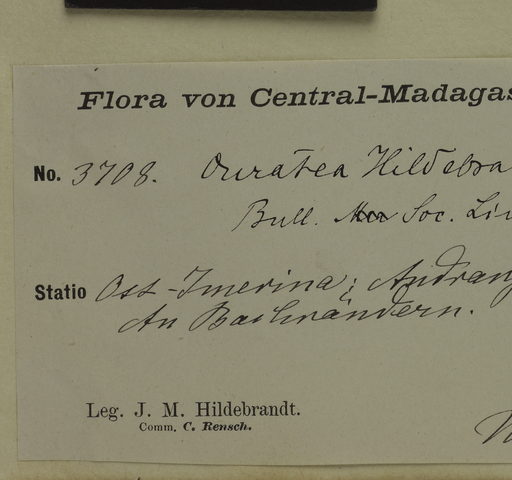 Flora von Central-Madagas
No. 3708. Ouratea Hildebra
Bull. Soc. Lin
Statio Ost-Imerina; Andrang
An Bachrändern.
Leg. J. M. Hildebrandt.
Comm. C. Rensch.